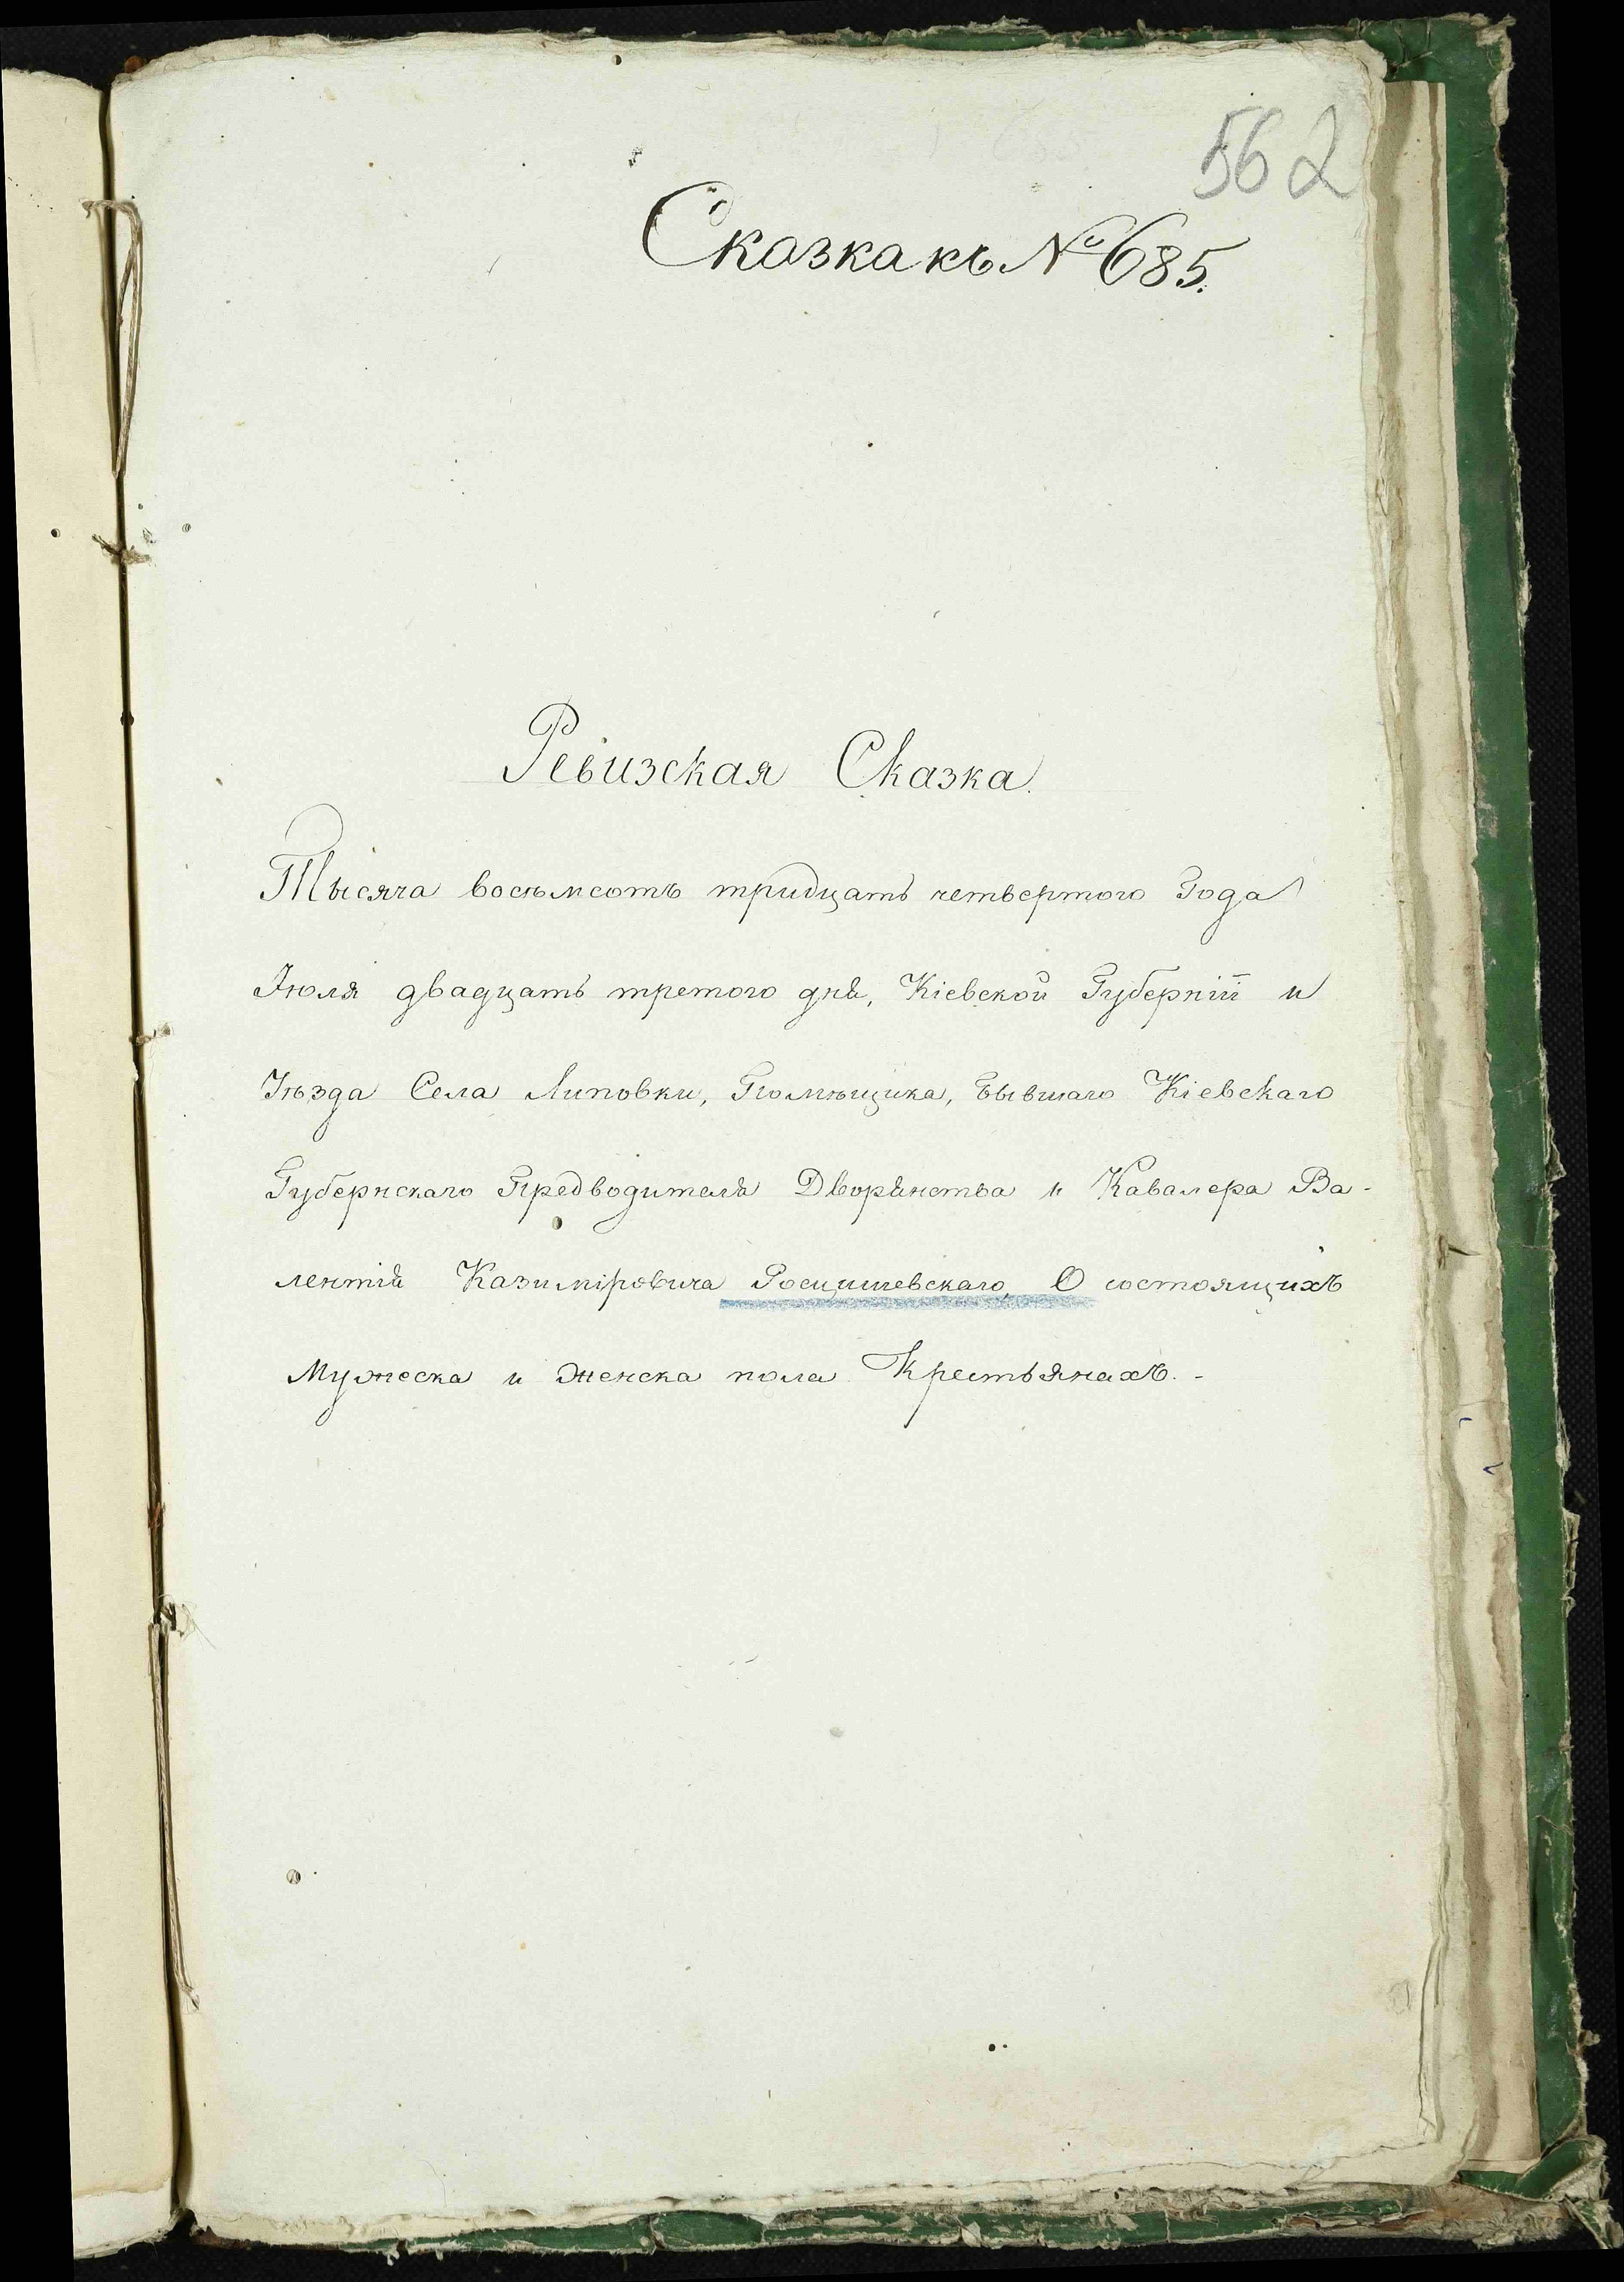 562
Сказка къ № 685.
Ревизская Сказка.
Тысяча восѣмсотъ тридцать четвертого Года
Іюля двадцать третого дня, Кіевской Губерніи и
Уѣзда Села Липовки, Помѣщика, бывшаго Кіевскаго
Губернскаго Предводителя Дворянства и Кавалера Ва-
лентія Казиміровича Росцишевскаго, О состоящихъ
Мужеска и Женска пола Крестьянахъ.-